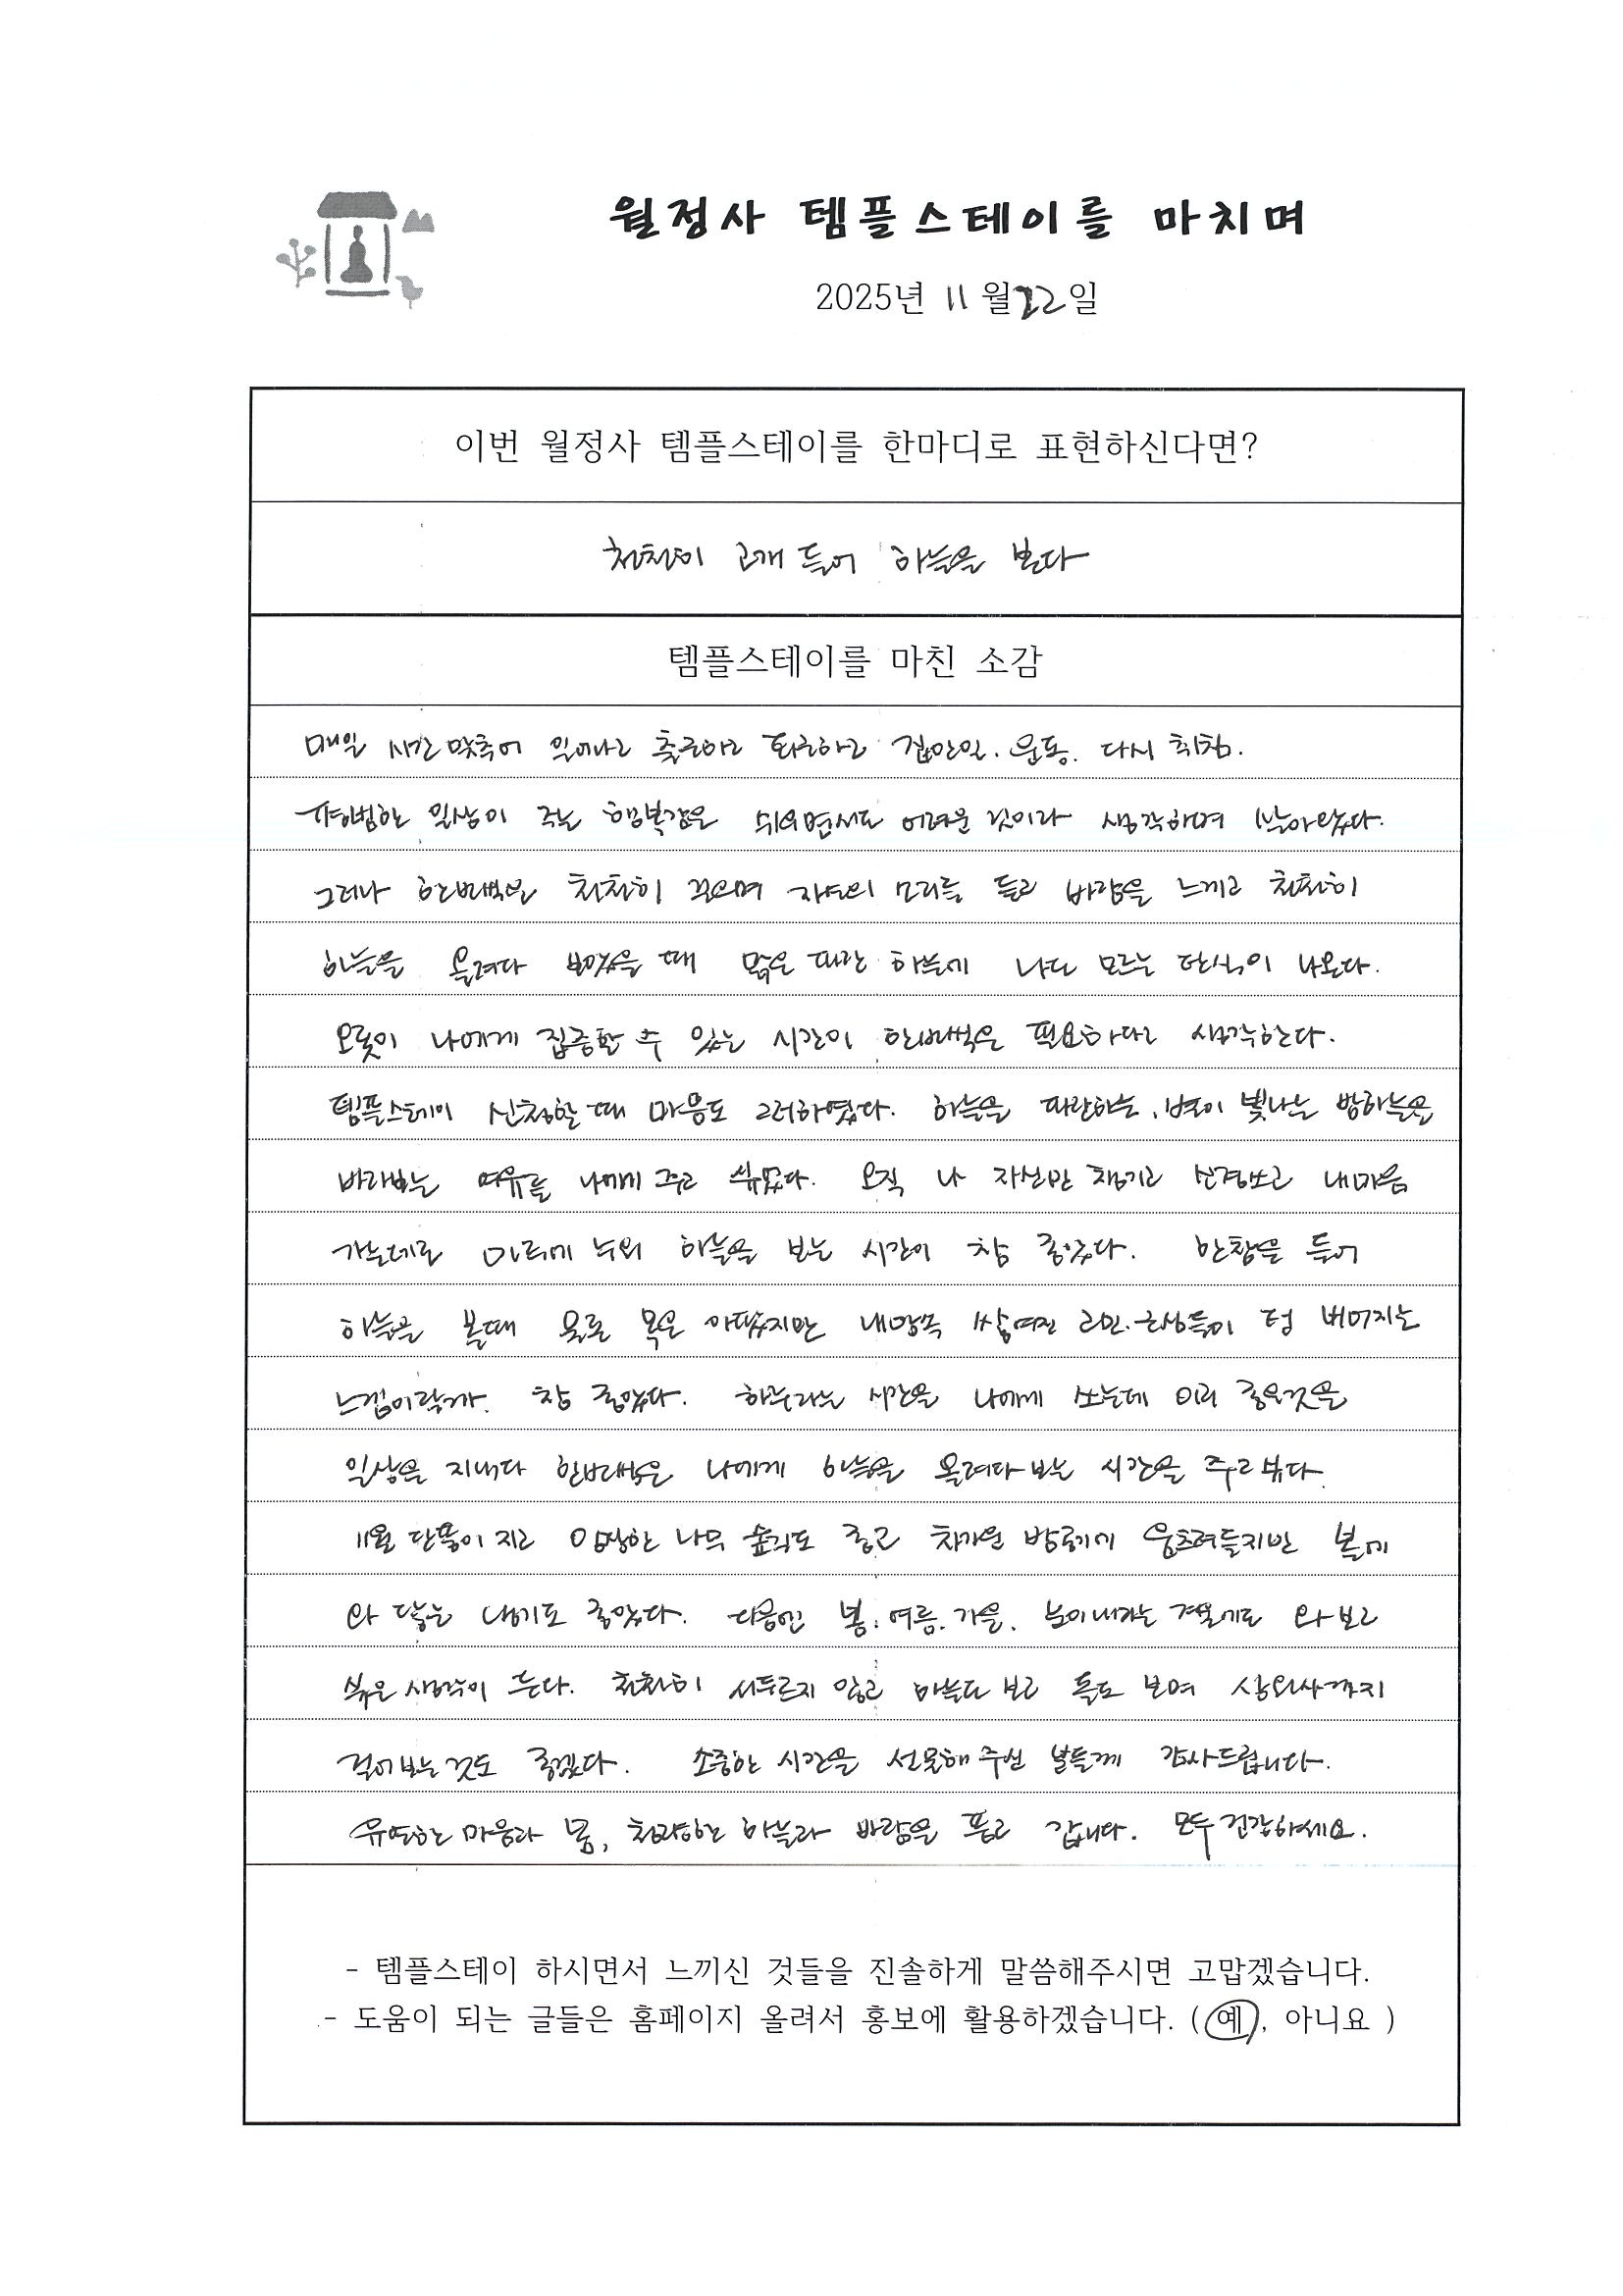 월정사 템플스테이를 마치며
2025년 11월 22일
이번 월정사 템플스테이를 한마디로 표현하신다면?
천천히 고개 들어 하늘을 본다
템플스테이를 마친 소감
매일 시간 맞추어 일어나고 출근하고 퇴근하고 집안일. 운동. 다시 취침.
평범한 일상이 주는 행복감은 쉬우면서도 어려운 것이라 생각하며 살아왔다.
그러나 한번씩은 천천히 걸으며 자연의 소리를 듣고 바람을 느끼고 천천히
하늘을 올려다 보았을 때 맑은 파란 하늘에 나도 모르는 탄식이 나온다.
오롯이 나에게 집중할 수 있는 시간이 한번씩은 필요하다고 생각한다.
템플스테이 신청할 때 마음도 그러하였다. 하늘을 파란하늘, 별이 빛나는 밤하늘을
바라보는 여유를 나에게 주고 싶었다. 오직 나 자신만 챙기고 신경쓰고 내마음
가는데로 누워 하늘을 보는 시간이 참 좋았다. 한참을 들어
하늘을 볼때 목은 아팠지만 쌓여진 고민.근심들이 텅 버어지는
느낌이랄까. 참 좋았다. 하루라는 시간을 나에게 쓰는데 이리 좋을것을
일상을 지내다 한번씩은 나에게 하늘을 올려다 보는 시간을 주고 싶다.
11월 단풍이 지고 앙상한 나무 숲길도 좋고 차가운 바람에 움츠려들지만 볼에
와 닿는 냉기도 좋았다. 다음엔 봄. 여름. 가을. 눈이내리는 겨울에도 와 보고
싶은 생각이 든다. 천천히 서두르지 않고 하늘도 보고 돌도 보며 상원사까지
걸어보는 것도 좋겠다. 소중한 시간을 선물해 주신 분들께 감사드립니다.
유연한 마음과 몸, 청량한 하늘과 바람을 품고 갑니다. 모두 건강하세요.
- 템플스테이 하시면서 느끼신 것들을 진솔하게 말씀해주시면 고맙겠습니다.
- 도움이 되는 글들은 홈페이지 올려서 홍보에 활용하겠습니다. ( 예, 아니요 )